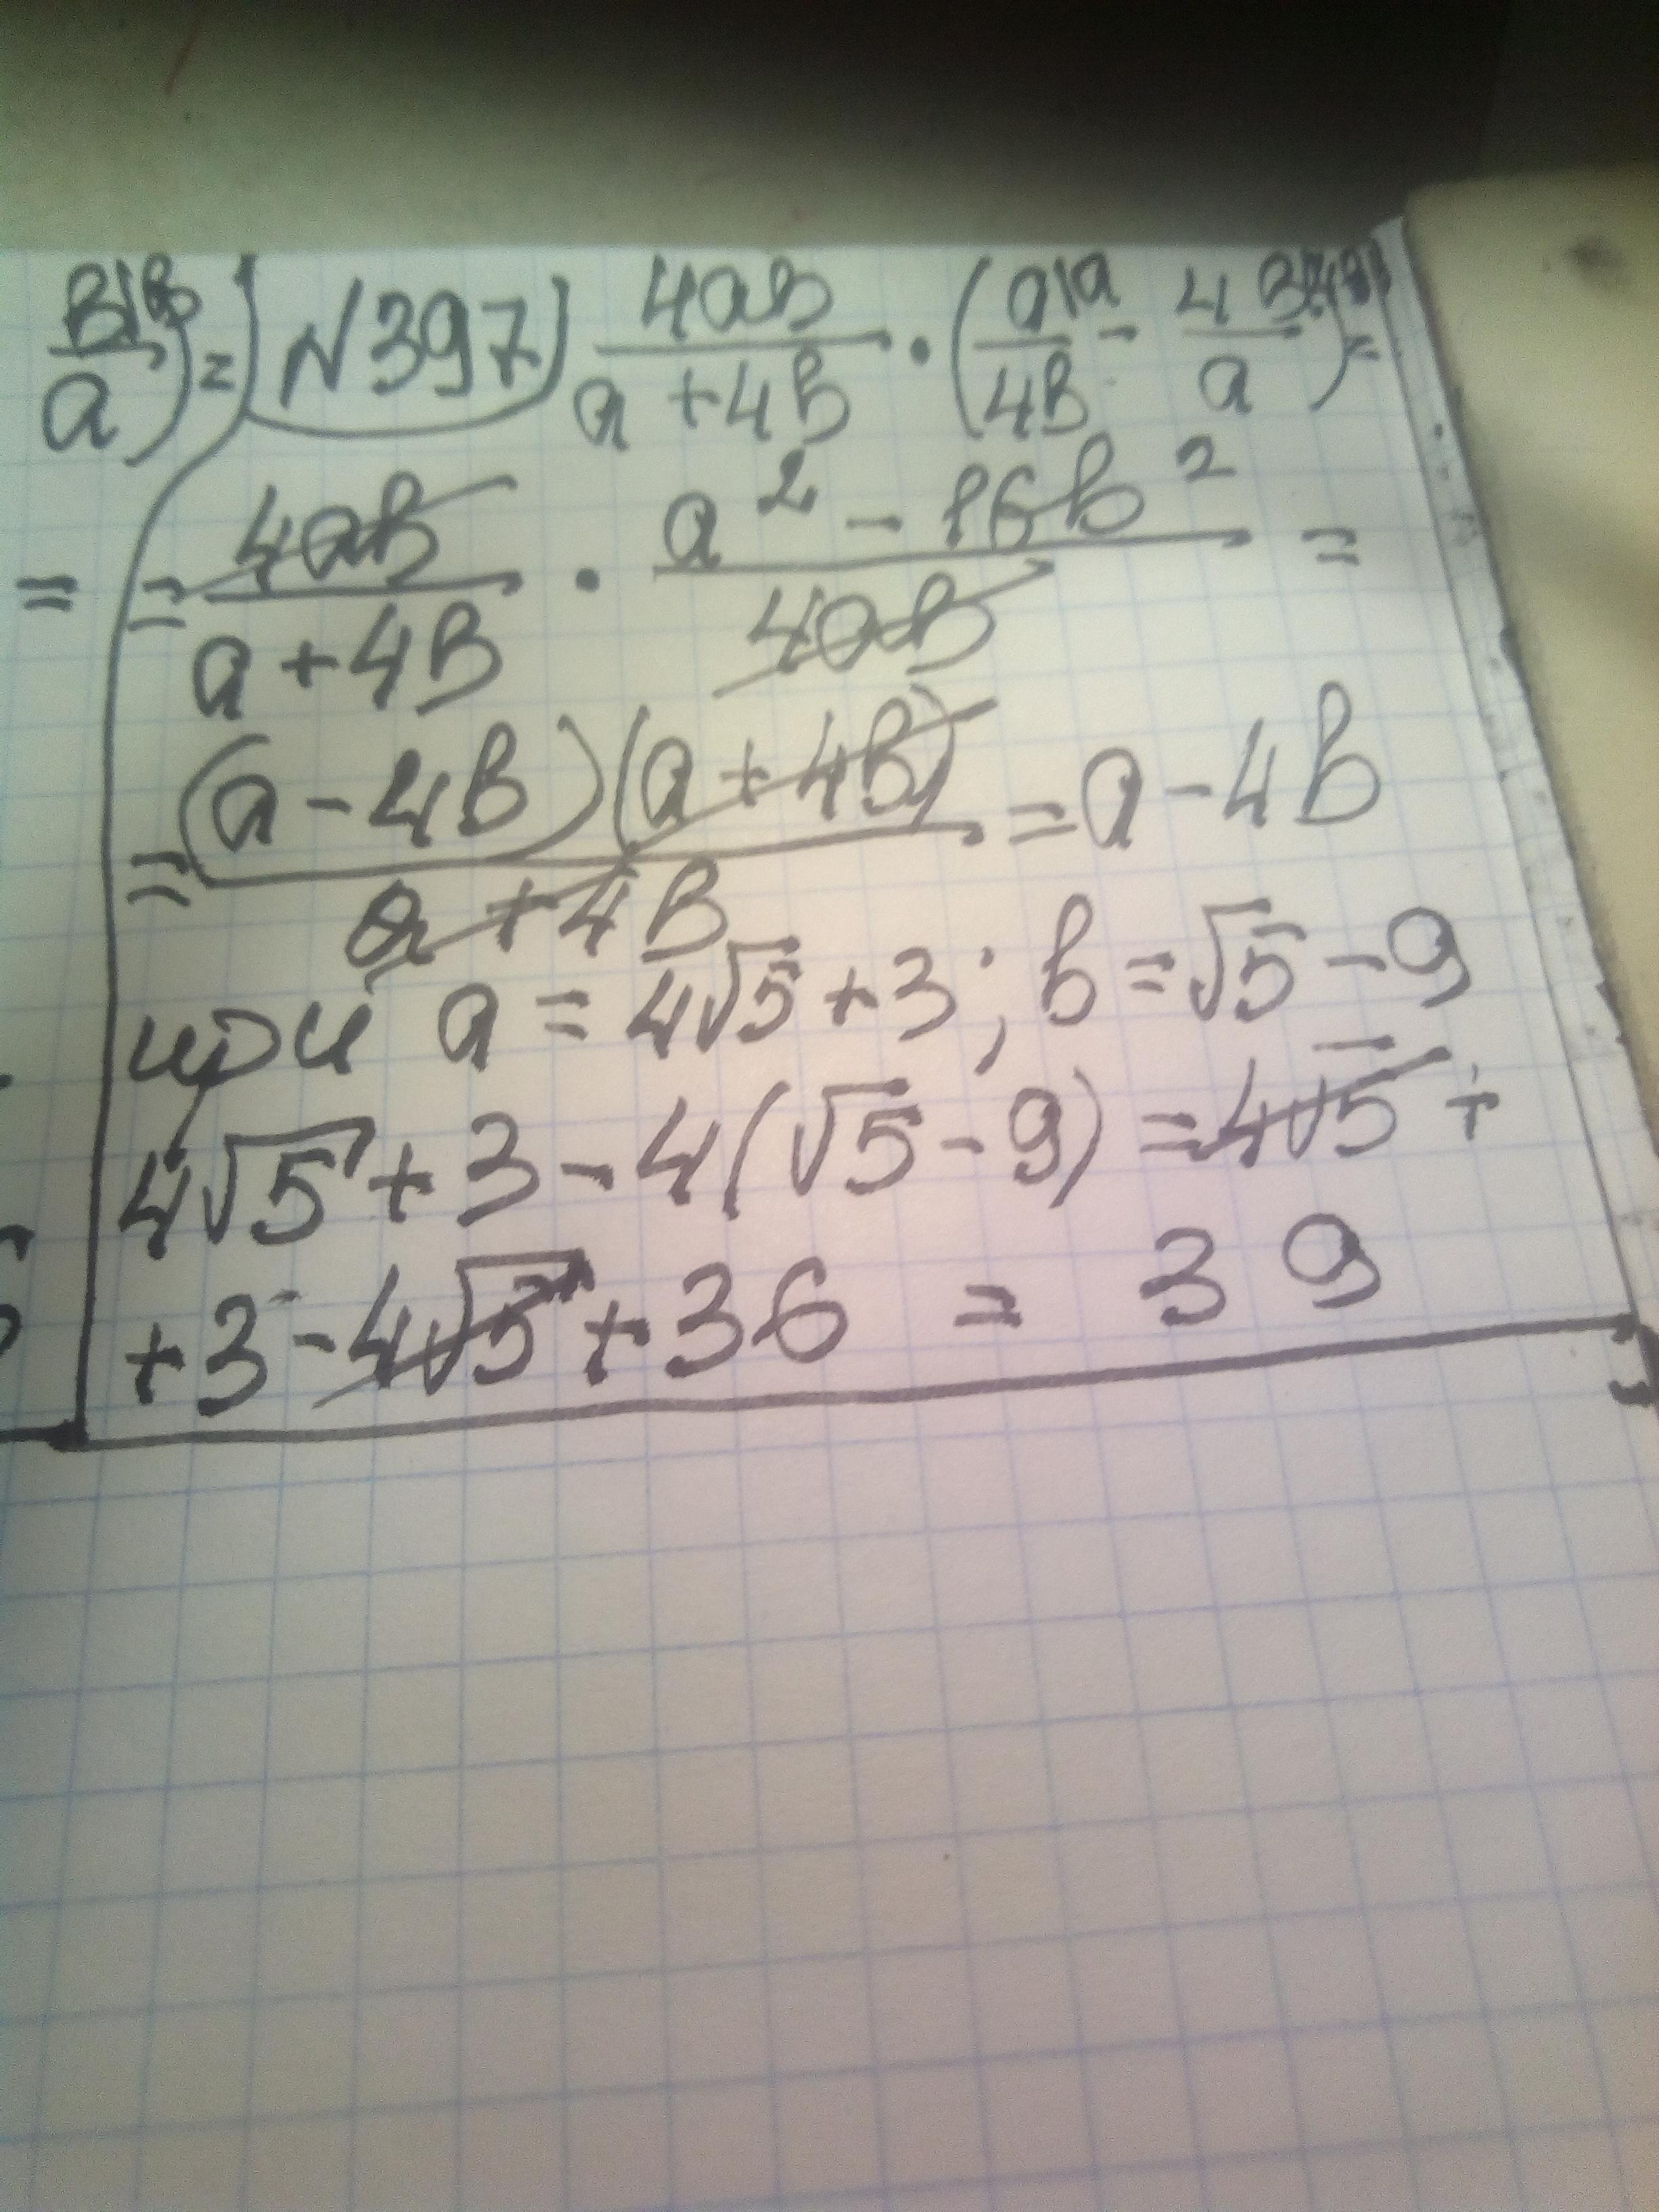 B|B/a) = №397) 4aB/(a+4B) · (a|a/4B - 4B|4B/a) =
= = 4aB/(a+4B) · (a² - 16b²)/4aB =
= (a-4B)(a+4B)/(a+4B) = a-4b
при a = 4√5+3; b = √5-9
4√5+3-4(√5-9) = 4√5+
+3-4√5+36 = 39